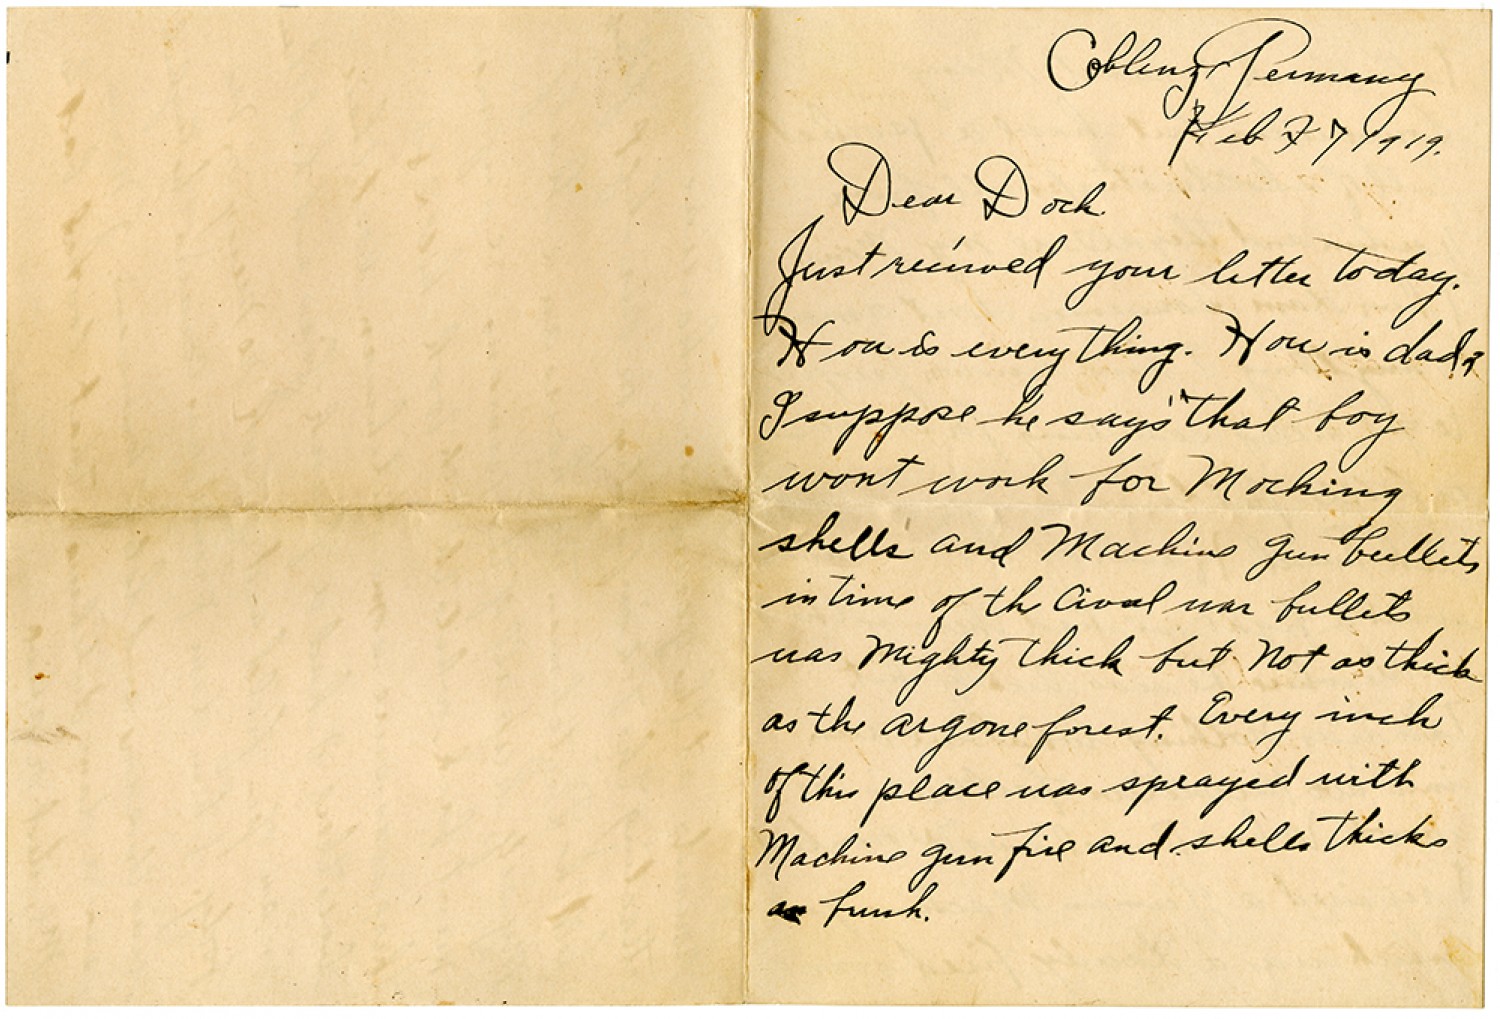 Coblenz Germany
Feb 27 1919.
Dear Dock.
Just recinved your letter today.
How is everything. How is dad?
I suppose he says "that boy
wont work for Mocking
shells and Machine gun bullets
in time of the Cival war bullets
was Mighty thick but Not as thick
as the argone forest. Every inch
of this place was sprayed with
Machine gun fire and shells thick
as brush.